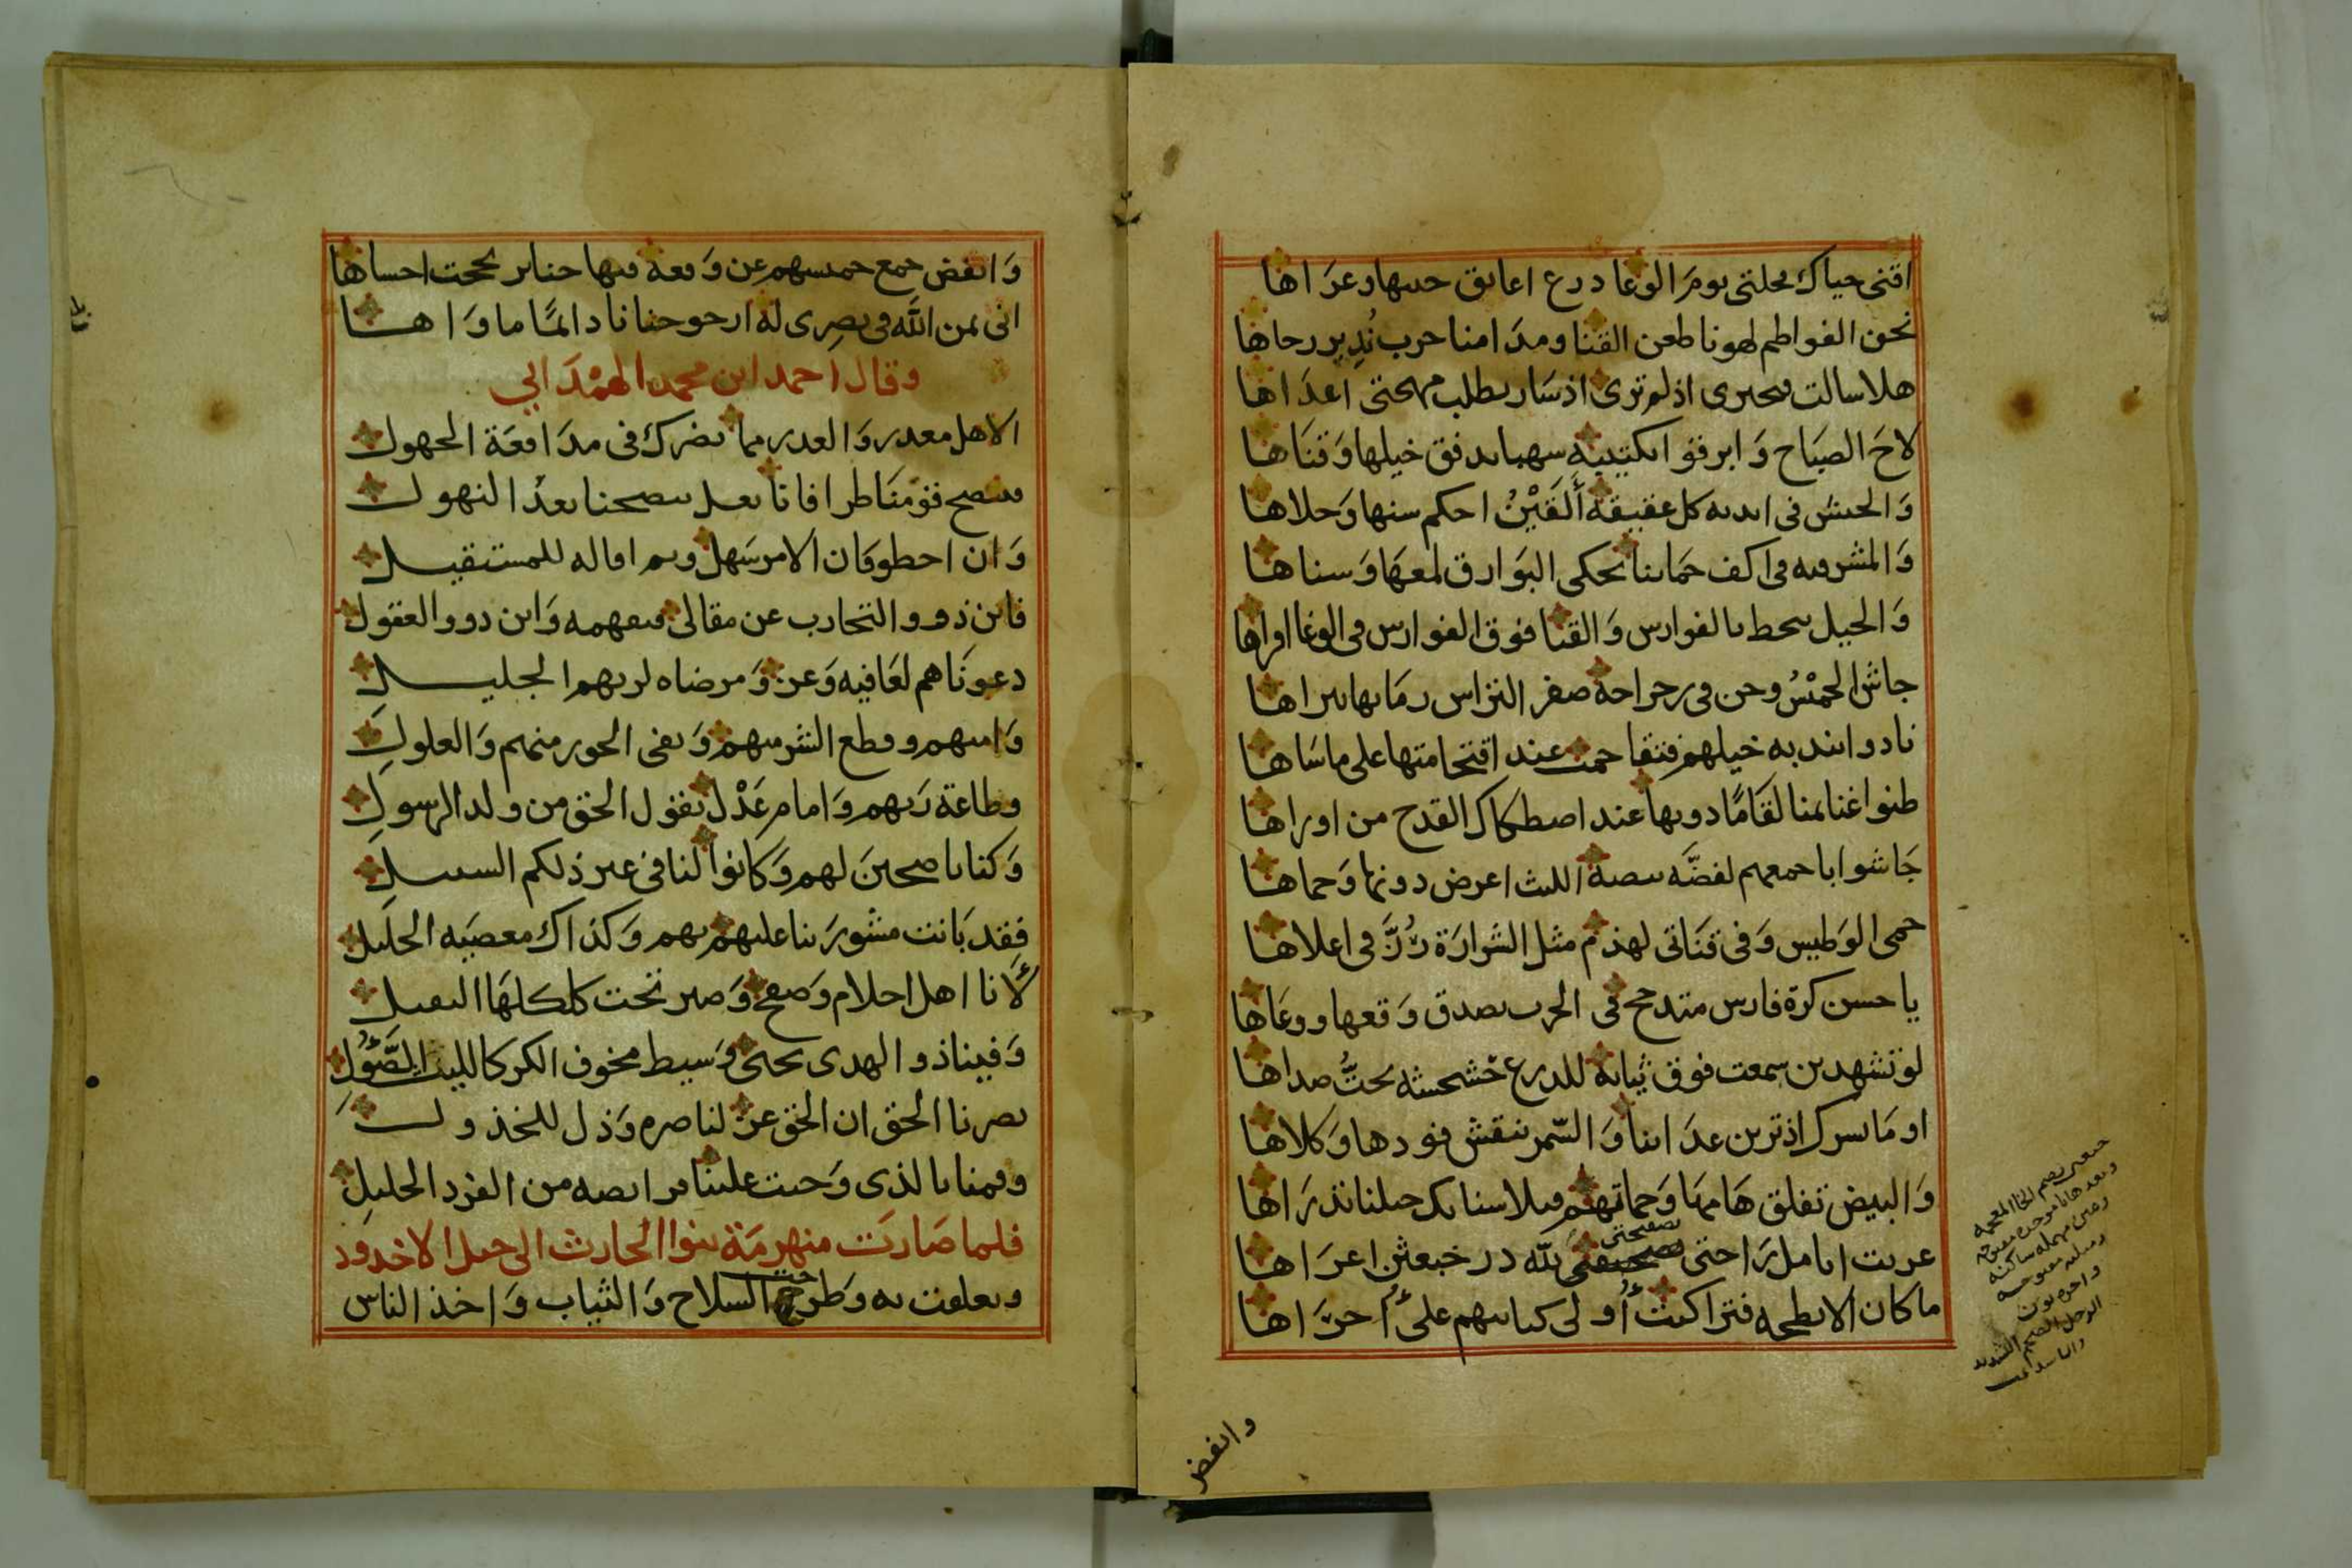 اقنى حياك محلتى يوم الوغا درع اعانق جيبها وعراها
نحن الفواطم لهونا طعن القنا ومدامنا حرب نُدير رحاها
هلا سالت فتخبرى اذ لم ترى اذ سار يطلب مهجتى اعداها
لاح الصباح وابرقوا بكتيبه سهباء تدفق خيلها وقناها
والجيش فى ايديه كل عقيقة أَلقَيْنُ احكم سنها وحلاها
والمشرفيه فى اكف حماتنا تحكى البوارق لمعها وسناها
والخيل تنحط بالفوارس والقنا فوق الفوارس فى الوغا اواها
جاش الخمسُ وحن فى رجراجة صفر التراس رماتها تبراها
نادوا بندبه خيلهم فتقاحمت عند اقتحامتها على ماساها
ظنوا غنايمنا لقامًا دونها عند اصطكاك القدح من اوراها
جاشوا باجمعهم لفضَّه بيضة الليث اعرض دونها وحماها
حمى الوطيس وفى قناتى لهذم مثل الشرارة رُزَّ فى اعلاها
يا حسن كرة فارس متدحج فى الحرب يصدق وقعها ووغاها
لو تشهدين سمعت فوق ثيابه للدرع خشخشه تحتُّ صداها
او ما يسرك اذ ترين عداتنا والسّمر تنقش فودها وكلاها
والبيض تفلق هامها وحماتهم قبلا سنابك خيلنا تذراها
عريت انامل راحتى بصفيحتى لله در خبعثن اعراها
ما كان الا بطحه فتراكبت أُولى كتايبهم على أُخراها
خبعثن بضم الخا المعجمه
وبعدها با موحده مفتوحه
وعين مهمله ساكنه
ومثلثه مفتوحه
واخره نون
الرجل الضخم الشديد
وانفض
وانفض جمع خميسهم عن وقعة فيها حناجر بججت احساها
انى بمن الله فى نصرى له ارجو جنانا دايمًا ماواها
وقال احمد ابن محمد الهمْدانى
الا هل معذر والعذر مما يضرك فى مدافعة الجهول
فننصح قومنا طرا فانا نعل نصحنا بعد النهول
وان احطو فان الامر سهل ونم اقاله للمستقيل
فاين ذوو التجارب عن مقالى فيفهمه واين ذوو العقول
دعوناهم لعافيه وعز ومرضاه لربهم الجليل
وامنهم وقطع الشر منهم ونفى الجور منهم والغلول
وطاعة ربهم وامام عَدْل يقول الحق من ولد الرسول
وكنا ناصحين لهم وكانوا لنا فى غير ذلكم السبيل
فقد بانت مشورتنا عليهم بهم وكذاك معصيه الخليل
لأنا اهل احلام وصفح وصبر تحت كلكلها الثقيل
وفينا ذو الهدى يحيى وسيط مخوف الكر كالليث الصَّؤُل
نصرنا الحق ان الحق عز لناصره وذل للخذول
وقمنا بالذى وجبت علينا فرايضه من الفرد الجليل
فلما صارت منهزمة بنوا الحارث الى جبل الاخدود
وتعلقت به وطرحت السلاح والثياب واخذ الناس